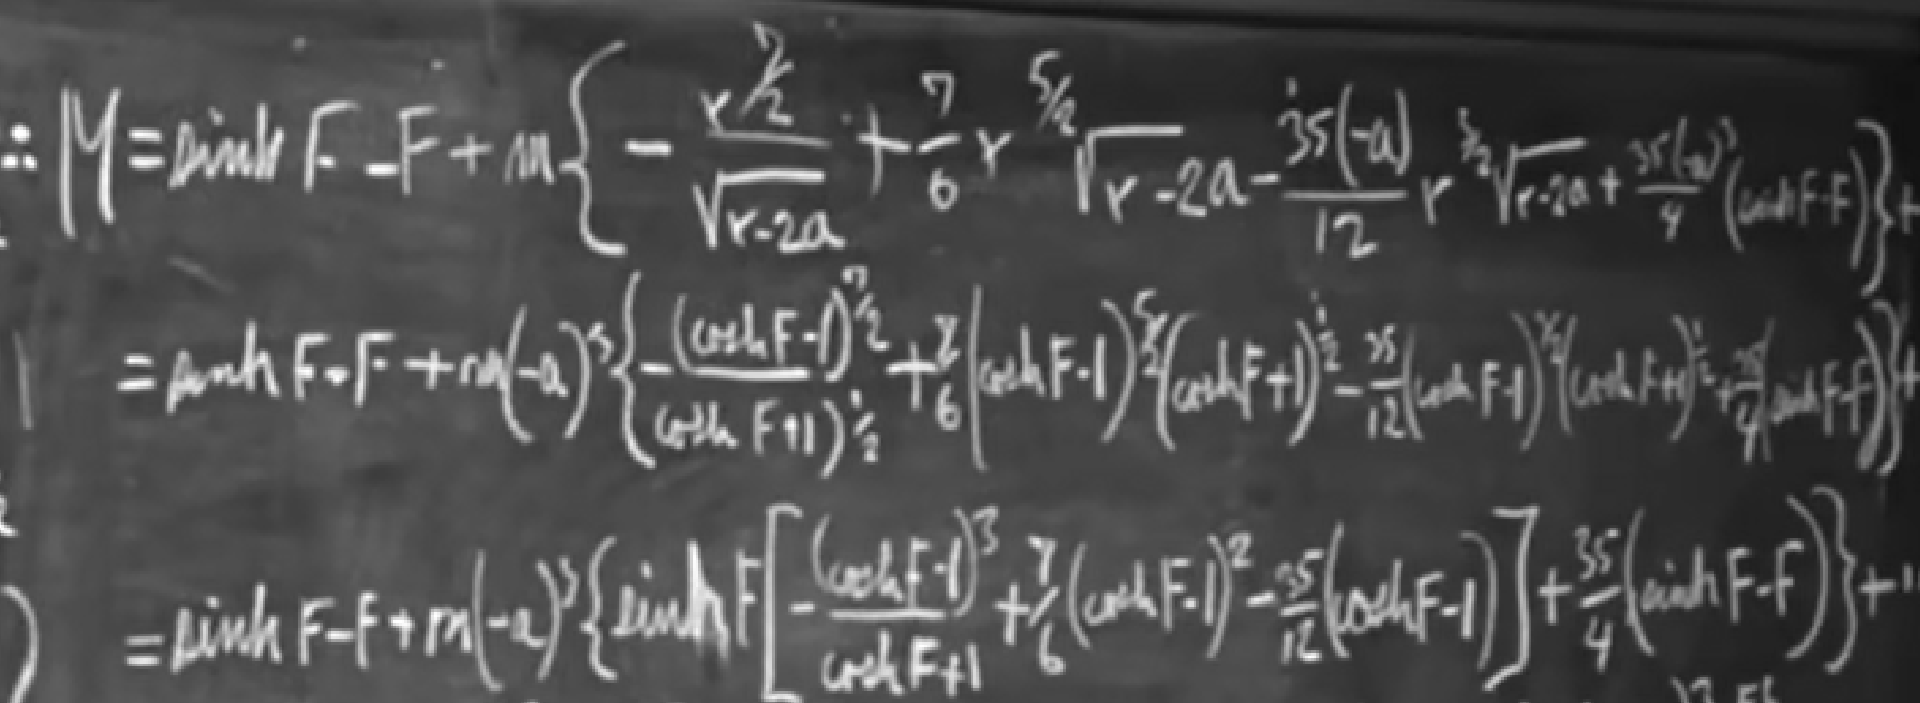 ∴ M = sinh F - F + m { - r^{7/2} / √(r-2a) + 7/6 r^{5/2} √(r-2a) - 35(-a)/12 r^{3/2} √(r-2a) + 35(-a)^3/4 (sinh F-F) } +
= sinh F - F + m(-a)^3 { - (cosh F-1)^{7/2} / (cosh F+1)^{1/2} + 7/6 (cosh F-1)^{5/2} (cosh F+1)^{1/2} - 35/12 (cosh F-1)^{3/2} (cosh F+1)^{1/2} + 35/4 (sinh F-F) } +
= sinh F - F + m(-a)^3 { sinh F [ - (cosh F-1)^3 / cosh F+1 + 7/6 (cosh F-1)^2 - 35/12 (cosh F-1) ] + 35/4 (sinh F-F) } + "